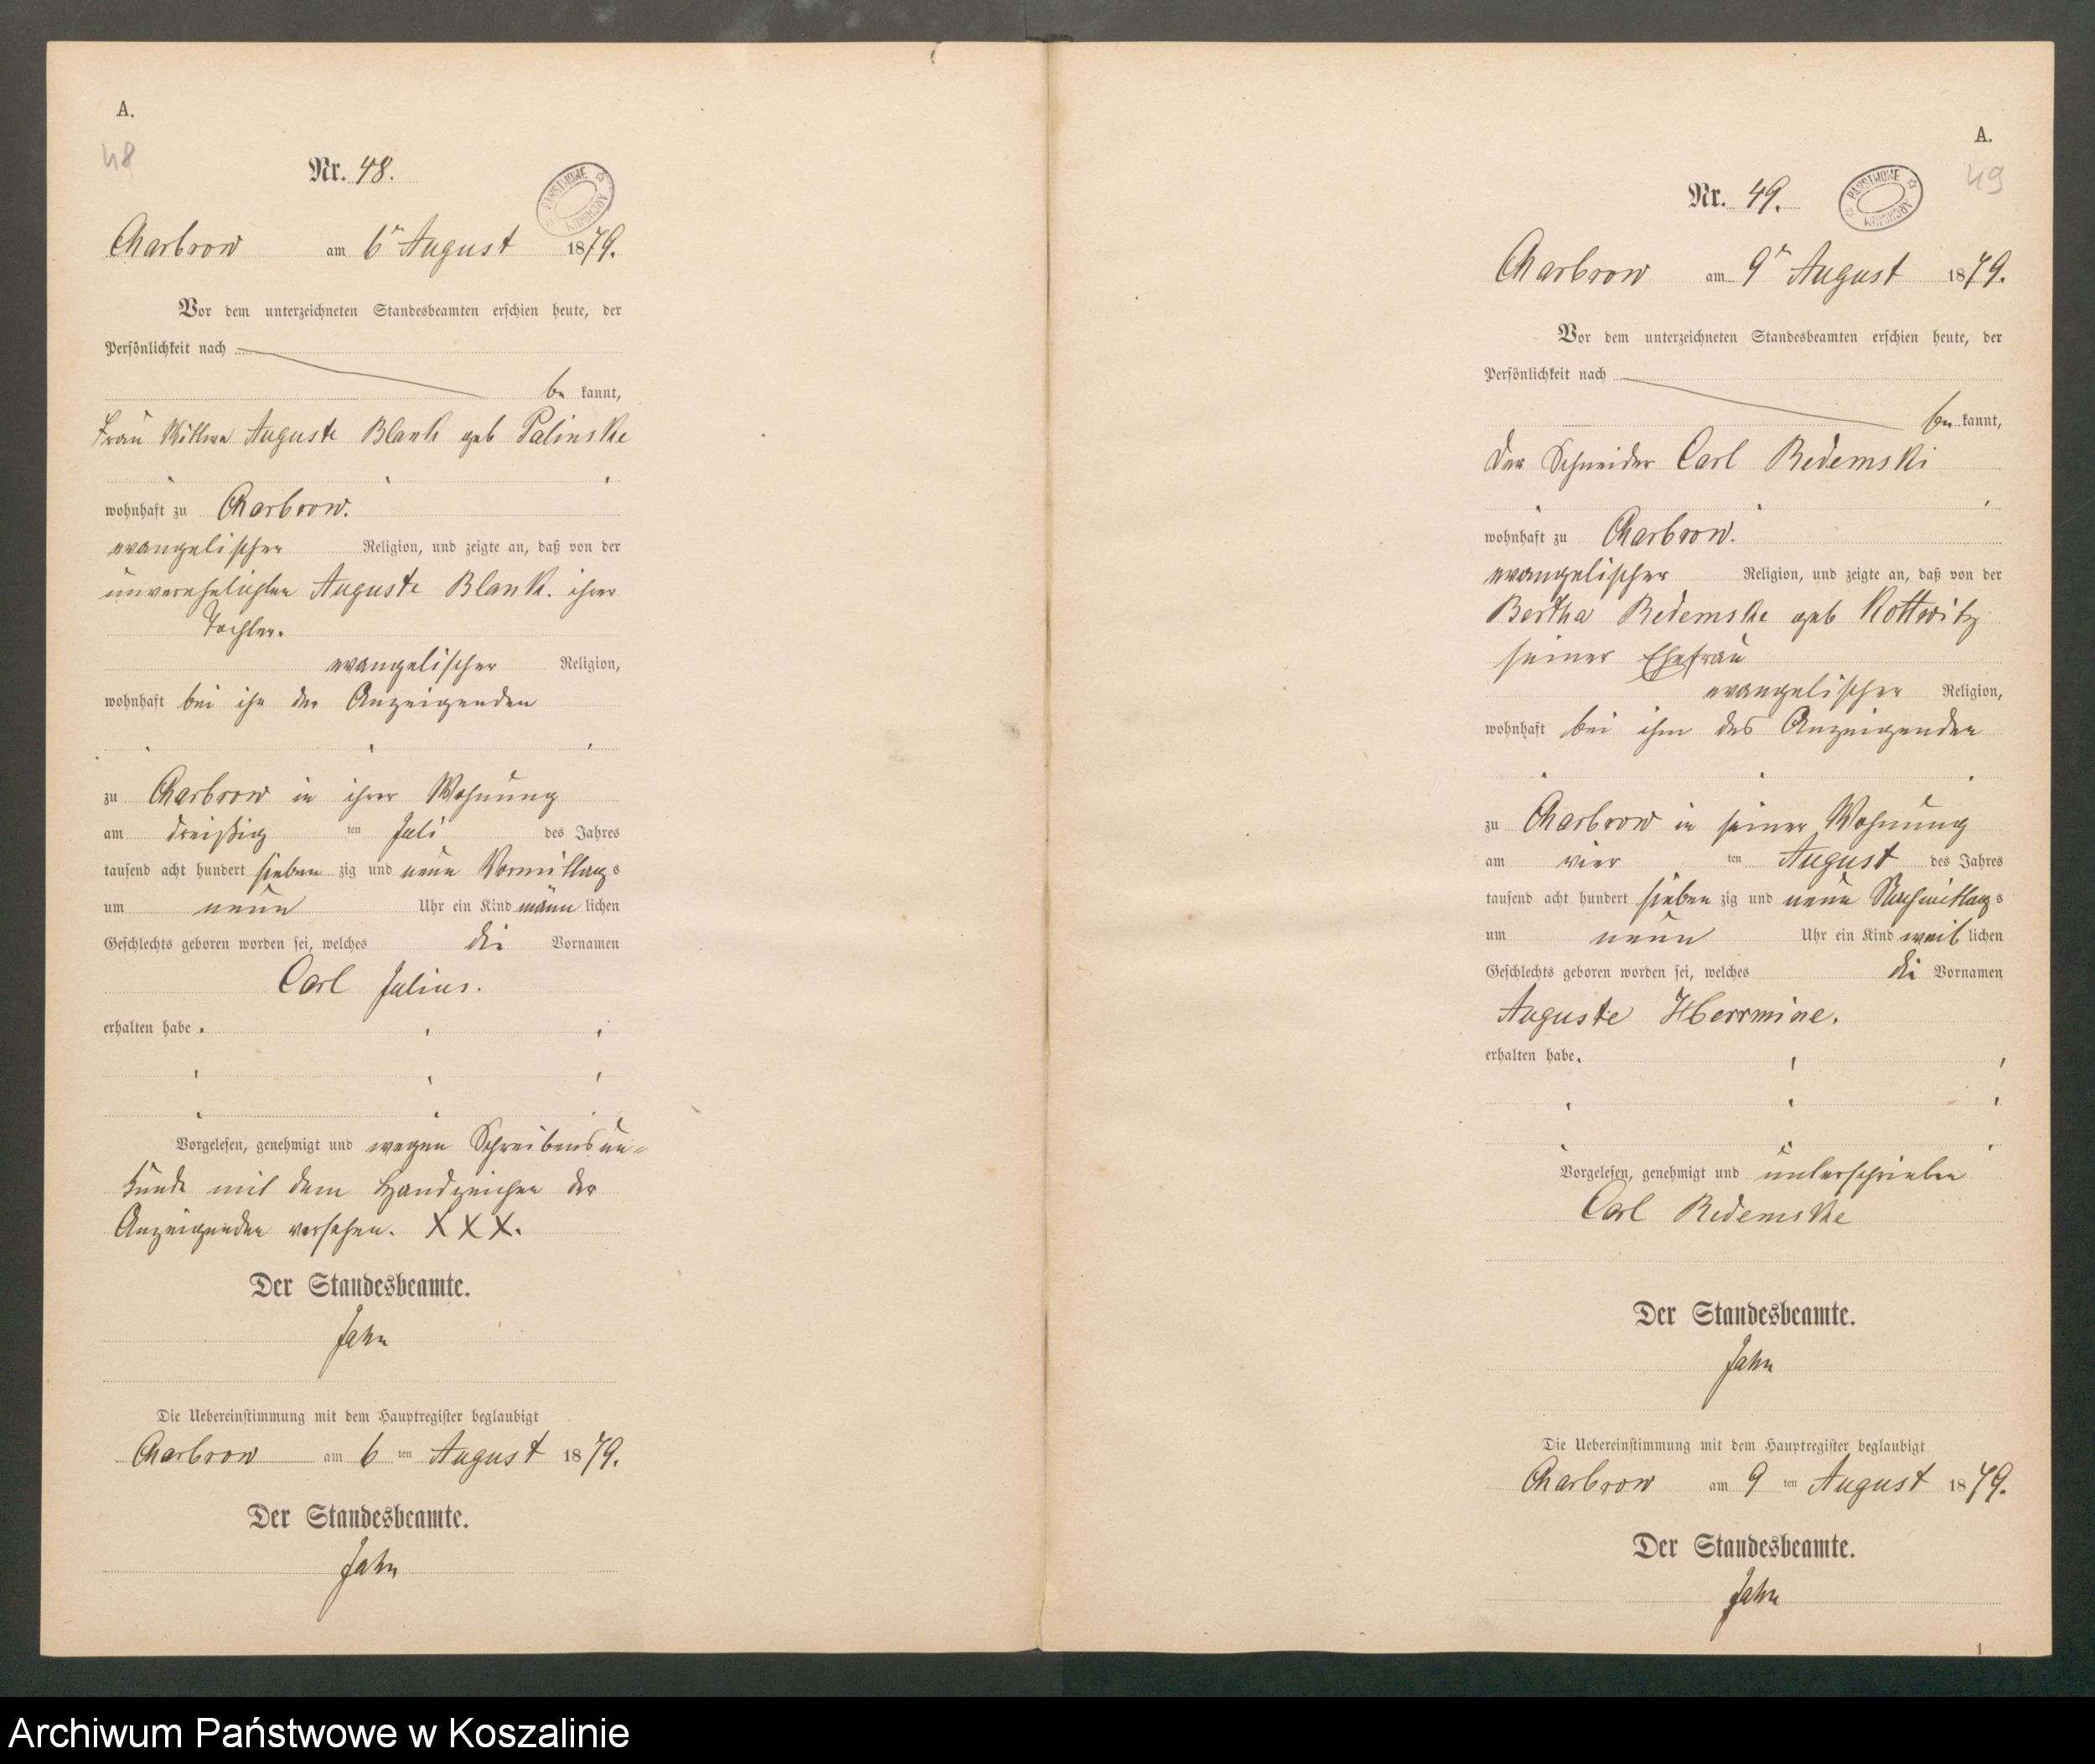 A.
48
Nr. 48.
PAŃSTWOWE ARCHIWUM
Charbrow am 6ᵗ August 1879.
Vor dem unterzeichneten Standesbeamten erschien heute, der
Persönlichkeit nach
be kannt,
Frau Wittwe Auguste Blank geb Palinske
wohnhaft zu Charbrow.
evangelischer Religion, und zeigte an, daß von der
unverehelichten Auguste Blank. ihrer
Tochter.
evangelischer Religion,
wohnhaft bei ihr der Anzeigenden
zu Charbrow in ihrer Wohnung
am dreißig ten Juli des Jahres
tausend acht hundert sieben zig und neun Vormittags
um neun Uhr ein Kind männ lichen
Geschlechts geboren worden sei, welches die Vornamen
Carl Julius.
erhalten habe.
Vorgelesen, genehmigt und wegen Schreibensun=
kunde mit dem Handzeichen der
Anzeigenden versehen. XXX.
Der Standesbeamte.
Jahn
Die Uebereinstimmung mit dem Hauptregister beglaubigt
Charbrow am 6 ten August 1879.
Der Standesbeamte.
Jahn
A.
49
Nr. 49.
PAŃSTWOWE ARCHIWUM
Charbrow am 9ᵗ August 1879.
Vor dem unterzeichneten Standesbeamten erschien heute, der
Persönlichkeit nach
be kannt,
der Schneider Carl Redemski
wohnhaft zu Charbrow.
evangelischer Religion, und zeigte an, daß von der
Bertha Redemske geb Kottwitz
seiner Ehefrau
evangelischer Religion,
wohnhaft bei ihm des Anzeigenden
zu Charbrow in seiner Wohnung
am vier ten August des Jahres
tausend acht hundert sieben zig und neun Nachmittags
um neun Uhr ein Kind weib lichen
Geschlechts geboren worden sei, welches die Vornamen
Auguste Herrmine.
erhalten habe.
Vorgelesen, genehmigt und unterschrieben
Carl Redemske
Der Standesbeamte.
Jahn
Die Uebereinstimmung mit dem Hauptregister beglaubigt
Charbrow am 9 ten August 1879.
Der Standesbeamte.
Jahn
1
Archiwum Państwowe w Koszalinie